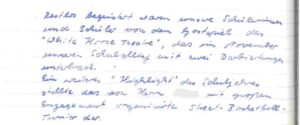 Restlos begeistert waren unsere Schülerinnen
und Schüler von dem Gastspiel des
"White Horse Theatre", das im November
unseren Schulalltag mit zwei Darbietungen
unterbrach.
Ein weiteres "Highlight" des Schuljahres
stellte das von Herrn mit großem
Engagement organisierte Street-Basketball-
Turnier dar.